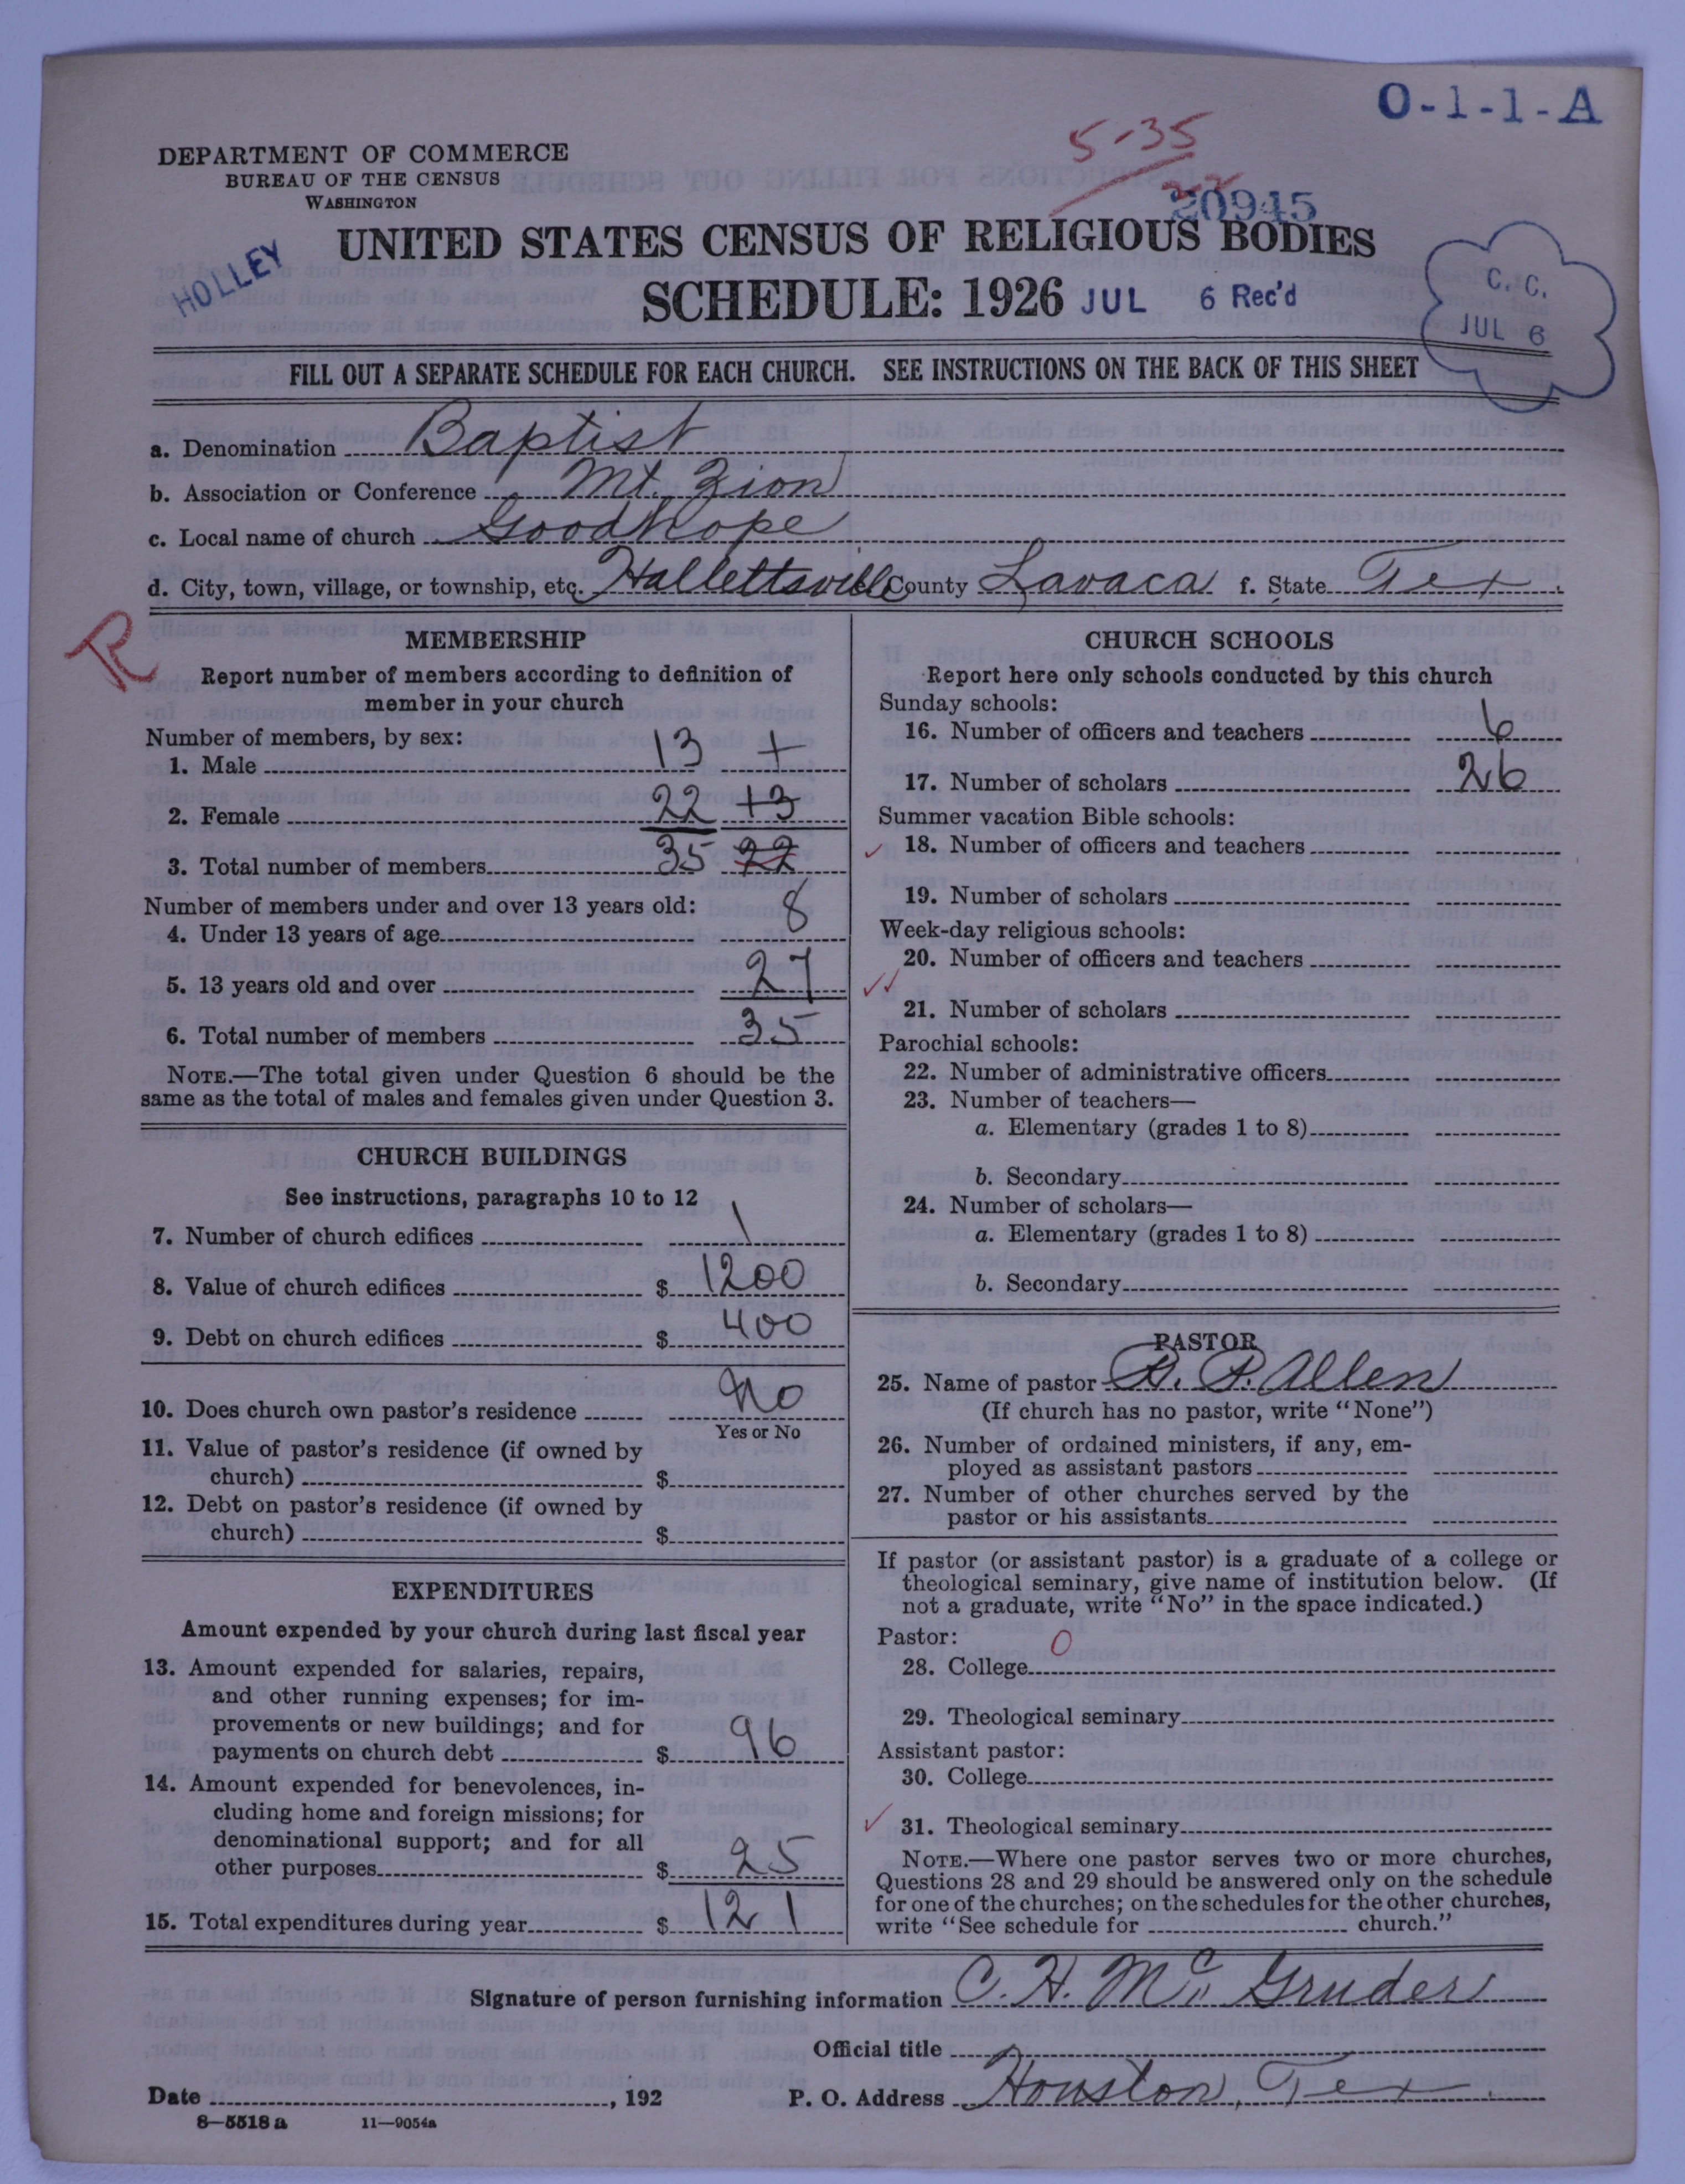 O-1-1-A
5-35
DEPARTMENT OF COMMERCE
BUREAU OF THE CENSUS
WASHINGTON
20945
HOLLEY
UNITED STATES CENSUS OF RELIGIOUS BODIES
SCHEDULE: 1926 JUL 6 Rec'd
C. C.
JUL 6
FILL OUT A SEPARATE SCHEDULE FOR EACH CHURCH. SEE INSTRUCTIONS ON THE BACK OF THIS SHEET
a. Denomination Baptist
b. Association or Conference Mt. Zion
c. Local name of church Goodhope
d. City, town, village, or township, etc. Hallettsville County Lavaca f. State Tex
R
MEMBERSHIP
Report number of members according to definition of
member in your church
Number of members, by sex:
1. Male 13 +
2. Female 22 +3
3. Total number of members 35 22
Number of members under and over 13 years old:
4. Under 13 years of age 8
5. 13 years old and over 27
6. Total number of members 35
NOTE.—The total given under Question 6 should be the
same as the total of males and females given under Question 3.
CHURCH BUILDINGS
See instructions, paragraphs 10 to 12
7. Number of church edifices 1
8. Value of church edifices $ 1200
9. Debt on church edifices $ 400
10. Does church own pastor's residence No
Yes or No
11. Value of pastor's residence (if owned by
church) $
12. Debt on pastor's residence (if owned by
church) $
EXPENDITURES
Amount expended by your church during last fiscal year
13. Amount expended for salaries, repairs,
and other running expenses; for im-
provements or new buildings; and for
payments on church debt $ 96
14. Amount expended for benevolences, in-
cluding home and foreign missions; for
denominational support; and for all
other purposes $ 25
15. Total expenditures during year $ 121
CHURCH SCHOOLS
Report here only schools conducted by this church
Sunday schools:
16. Number of officers and teachers 6
17. Number of scholars 26
Summer vacation Bible schools:
18. Number of officers and teachers
19. Number of scholars
Week-day religious schools:
20. Number of officers and teachers
21. Number of scholars
Parochial schools:
22. Number of administrative officers
23. Number of teachers—
a. Elementary (grades 1 to 8)
b. Secondary
24. Number of scholars—
a. Elementary (grades 1 to 8)
b. Secondary
PASTOR
25. Name of pastor B. P. Allen
(If church has no pastor, write "None")
26. Number of ordained ministers, if any, em-
ployed as assistant pastors
27. Number of other churches served by the
pastor or his assistants
If pastor (or assistant pastor) is a graduate of a college or
theological seminary, give name of institution below. (If
not a graduate, write "No" in the space indicated.)
Pastor: 0
28. College
29. Theological seminary
Assistant pastor:
30. College
31. Theological seminary
NOTE.—Where one pastor serves two or more churches,
Questions 28 and 29 should be answered only on the schedule
for one of the churches; on the schedules for the other churches,
write "See schedule for church."
Signature of person furnishing information C. H. Mc Gruder
Official title
Date , 192 P. O. Address Houston, Tex.
8—5518 a 11—9054a